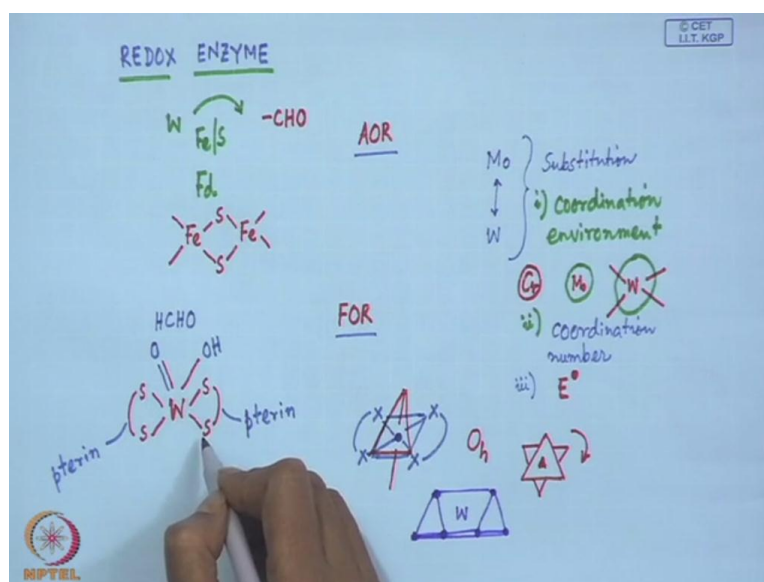 © CET
I.I.T. KGP
REDOX ENZYME
W
Fe/S
-CHO
AOR
Fd.
S
Fe Fe
S
Mo
W
Substitution
i) coordination
environment
Cr Mo W
ii) coordination
number
iii) E°
HCHO
FOR
O OH
S S
W
S S
pterin pterin
X X
X X
Oh
A
W
NPTEL